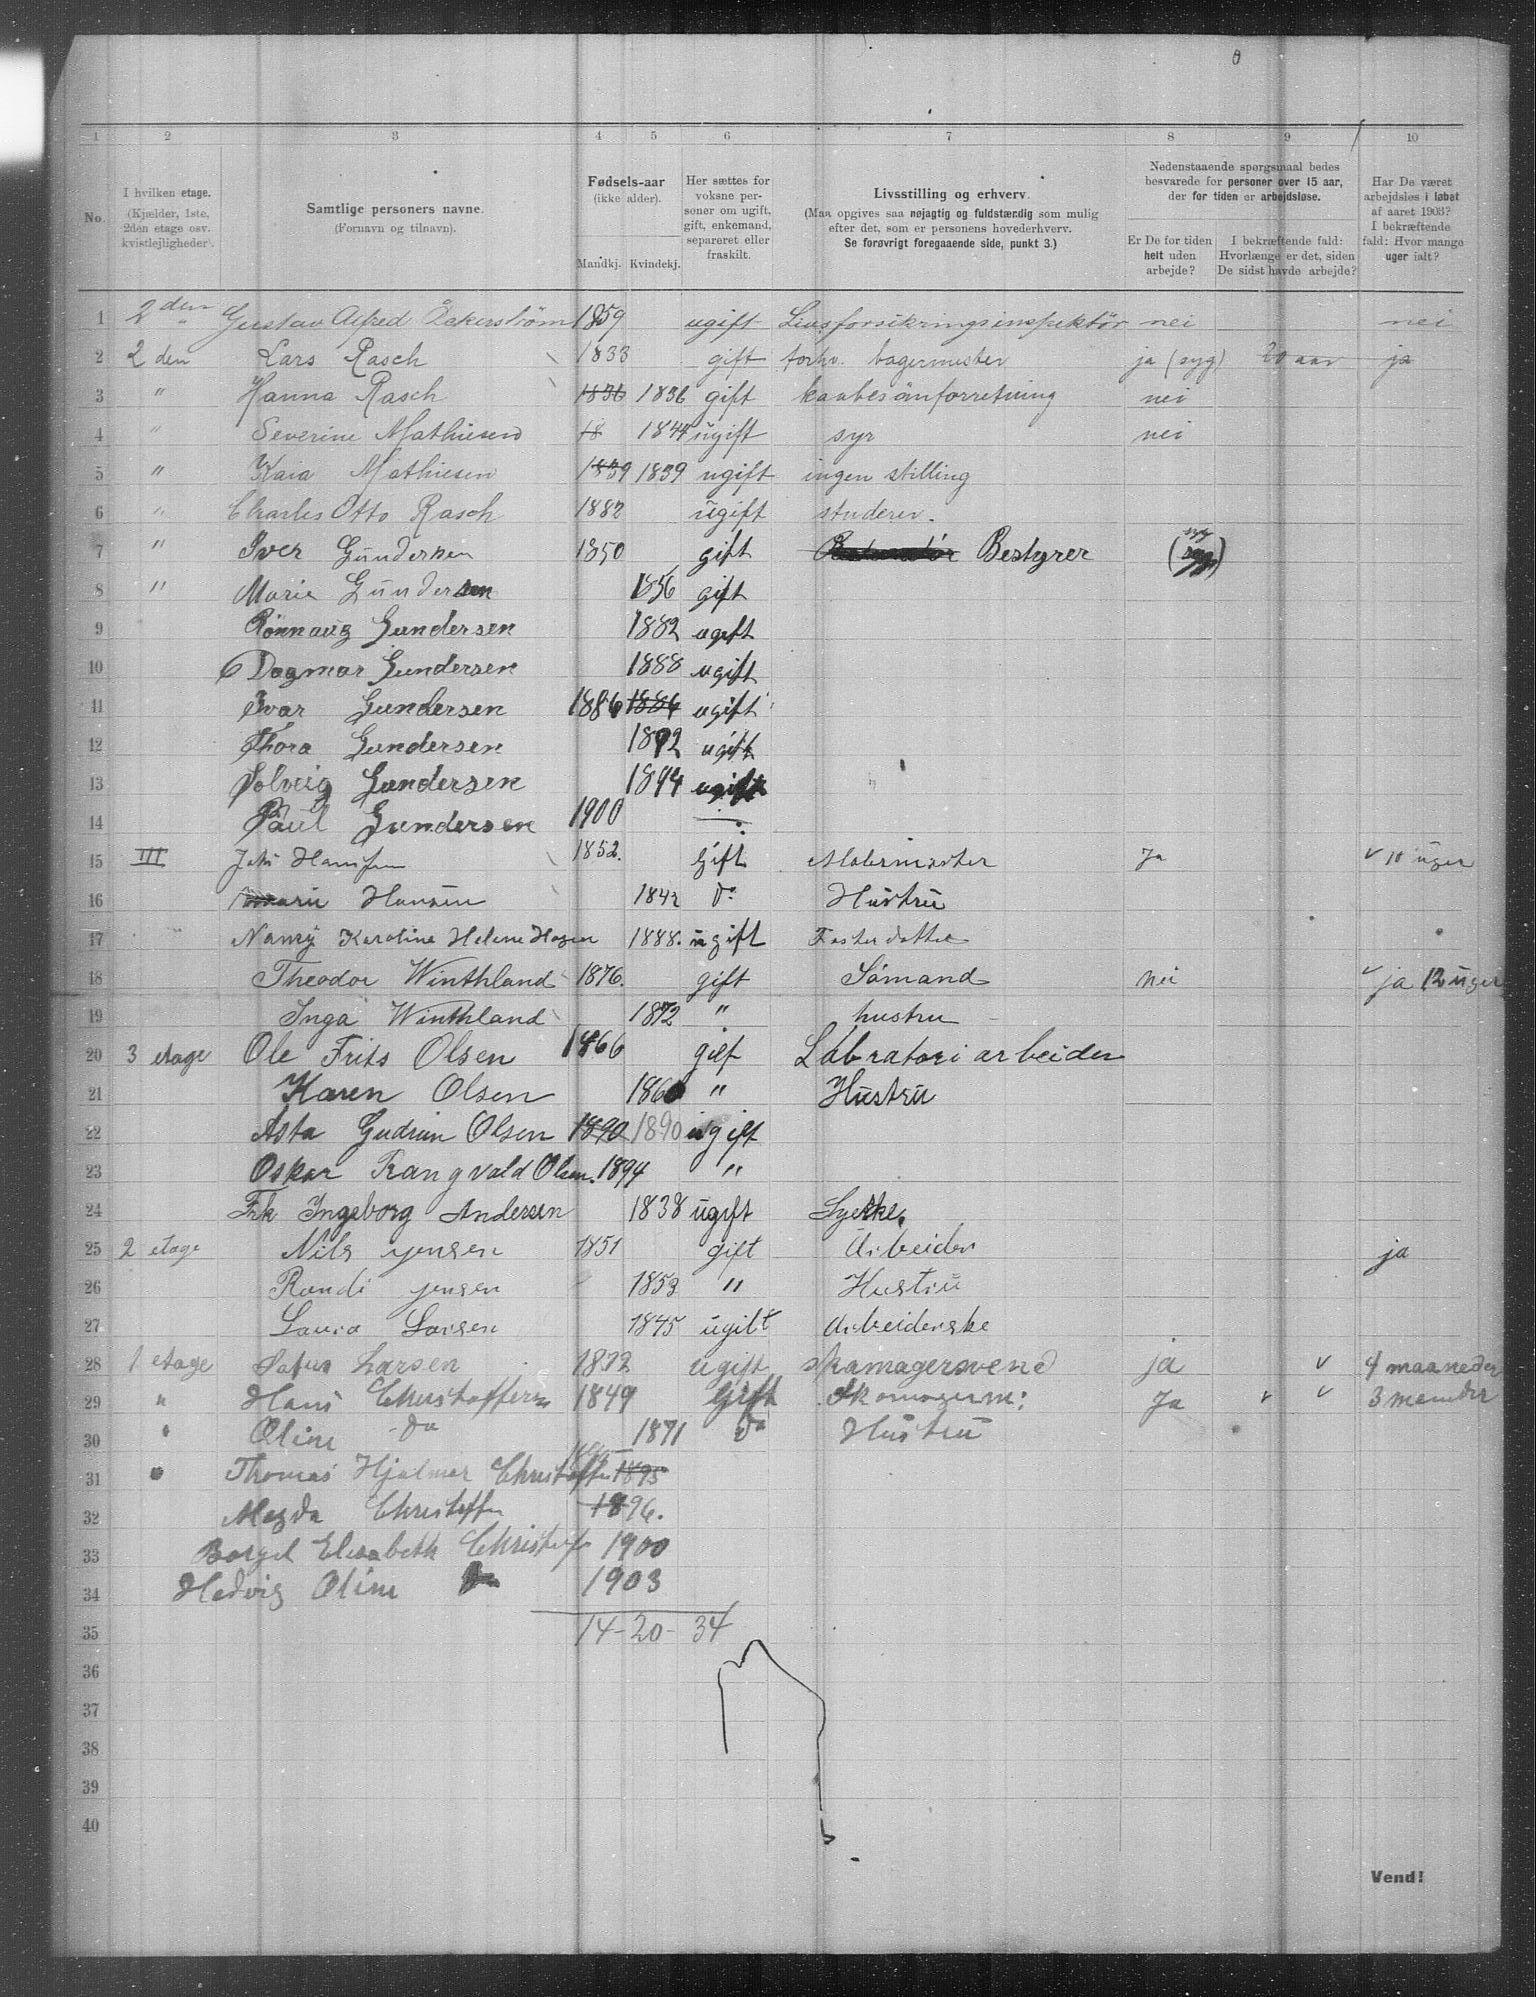 0
1 2 3 4 5 6 7 8 9 10
No.
I hvilken etage. (Kjælder, 1ste, 2den etage osv. kvistlejligheder).
Samtlige personers navne. (Fornavn og tilnavn).
Fødsels-aar (ikke alder). Mandkj. Kvindekj.
Her sættes for voksne personer om ugift, gift, enkemand, separeret eller fraskilt.
Livsstilling og erhverv. (Maa opgives saa nøjagtig og fuldstændig som mulig efter det, som er personens hovederhverv. Se forøvrigt foregaaende side, punkt 3.)
Nedenstaaende spørgsmaal bedes besvarede for personer over 15 aar, der for tiden er arbejdsløse.
Er De for tiden helt uden arbejde?
I bekræftende fald: Hvorlænge er det, siden De sidst havde arbejde?
Har De været arbejdsløs i løbet af aaret 1903? I bekræftende fald: Hvor mange uger ialt?
1 2 den Gustav Alfred Åckerström 1859 ugift Livsforsikringsinspektör nei nei
2 2 den Lars Rasch 1833 gift forhv. bagermester ja (syg) 20 aar ja
3 " Hanna Rasch 1836 1836 gift nei
4 " Severine Mathiesen 18 1844 ugift syr nei
5 " Kaia Mathiesen 1839 1839 ugift ingen stilling
6 " Charles Otto Rasch 1882 ugift studerer.
7 " Iver Gundersen 1850 gift Bestyrer (syg)
8 " Marie Gundersen 1856 gift
9 Rönnaug Gundersen 1882 ugift
10 Dagmar Gundersen 1888 ugift
11 Ivar Gundersen 1886 1886 ugift
12 Thora Gundersen 1892 ugift
13 Solveig Gundersen 1894 ugift
14 Paul Gundersen 1900
15 III 1852. gift Malermester Ja 10 uger
16 Marie Hansen 1842 do Hustru
17 Nanny Karoline Helene Hagen 1888. ugift Fosterdatter
18 Theodor Winthland 1876. gift Sömand nei ja 12 uger
19 Inga Winthland 1872 " hustru
20 3 etage Ole Frits Olsen 1866 gift Labratoriarbeider
21 Karen Olsen 1860 " Hustru
22 Asta Gudrun Olsen 1890 1890 ugift
23 Oskar Rangvald Olsen. 1894 "
24 Frk Ingeborg Andersen 1838 ugift Syerske.
25 2 etage Nils Jensen 1851 gift Arbeider ja
26 Randi Jensen 1853 " Hustru
27 Laura Larsen 1845 ugift Arbeiderske
28 1 etage Larsen 1872 ugift skomagersvend ja 4 maaneder
29 " Hans Christoffersen 1849 Gift Skomagerm: Ja 3 maneder
30 " Oline Do 1871 do Hustru
31 " Thomas Hjalmar Christoffe 1895 1895
32 Magda Christoffe 1896.
33 Borgil Elisabeth Christoffe 1900
34 Hedvig Oline Do 1903
35 14 - 20 - 34
36
37
38
39
40
Vend!